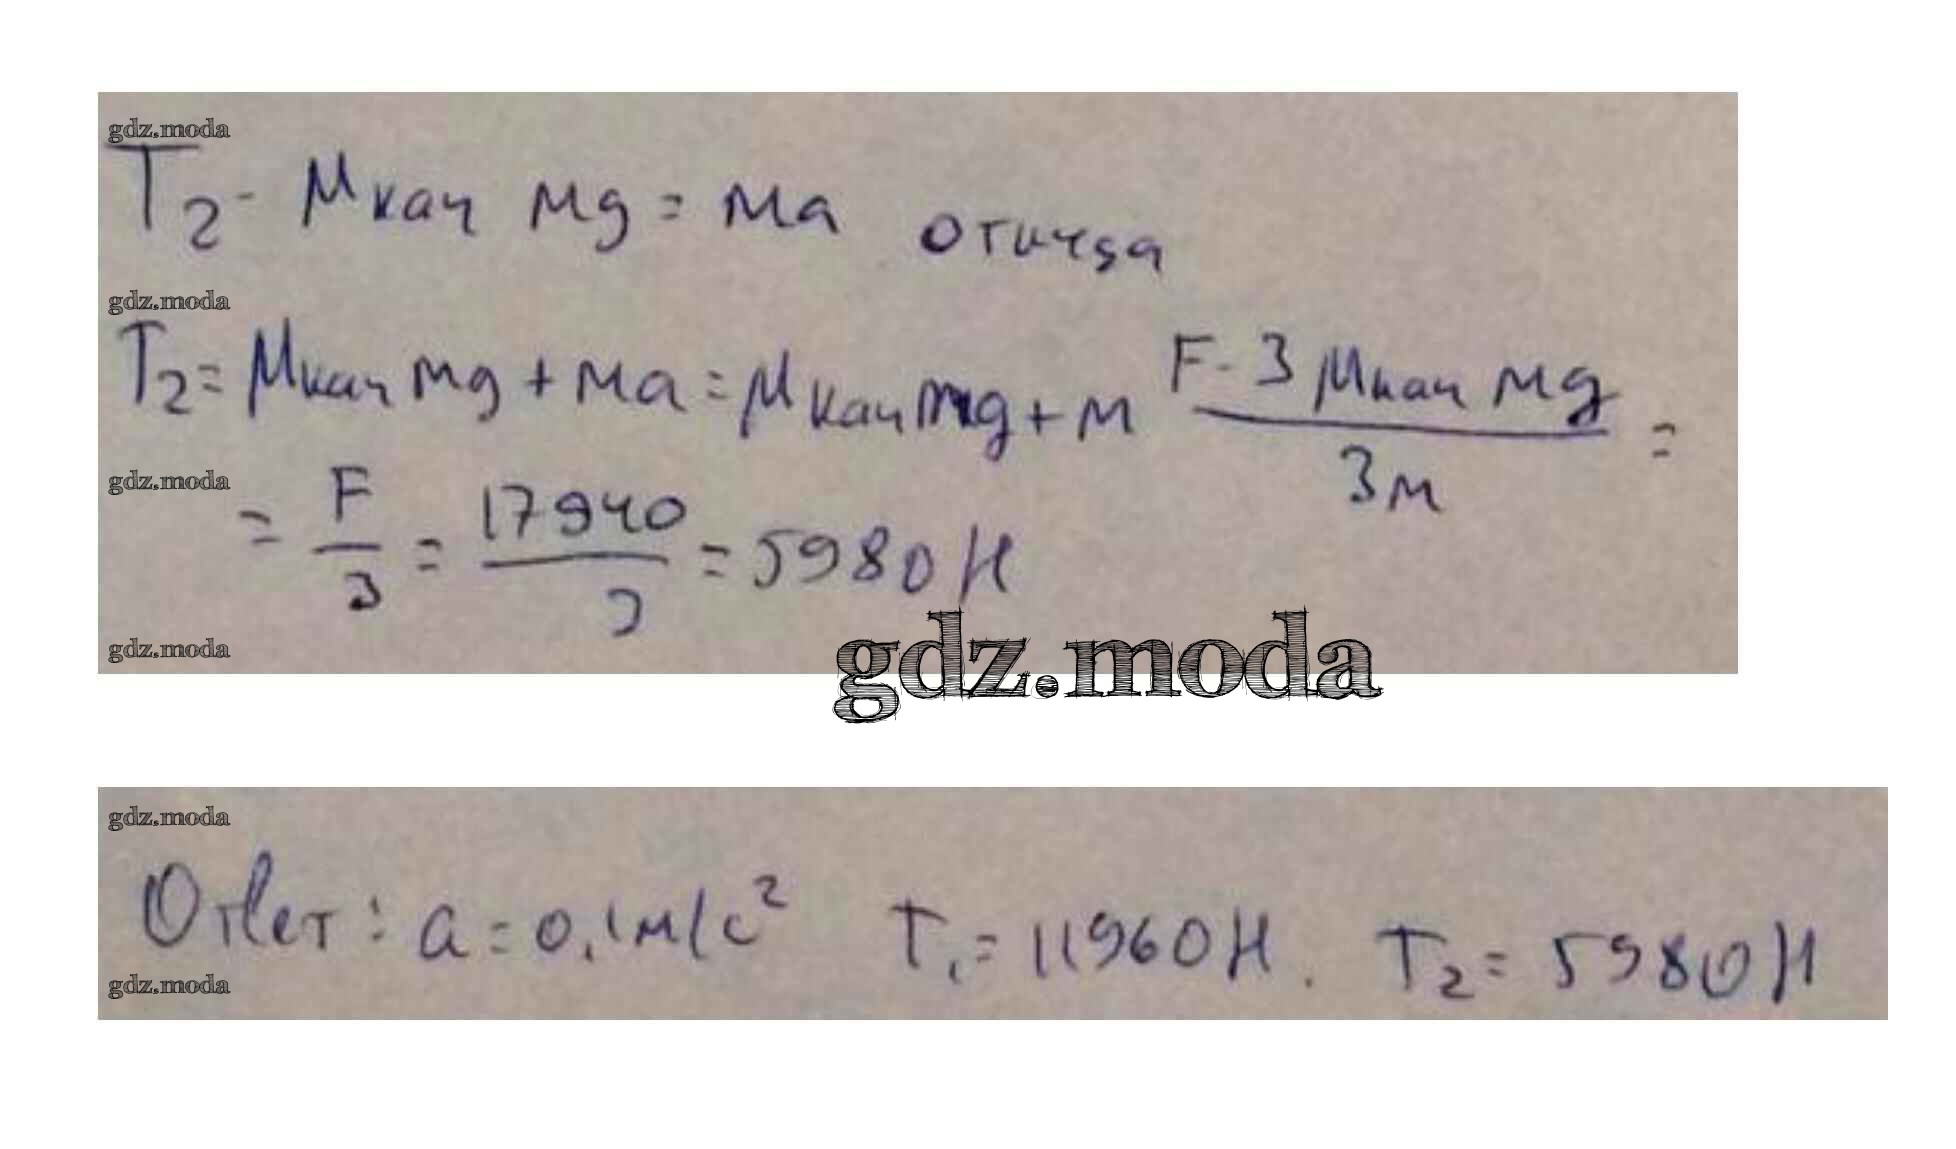 gdz.moda
T₂ - μкач мg = ма отсюда
gdz.moda
T₂ = μкач mg + ма = μкач mg + м (F - 3 μкач мg)/(3м) =
gdz.moda
= F/3 = 17940/3 = 5980 Н
gdz.moda
gdz.moda
gdz.moda
Ответ: a = 0,1 м/с² T₁ = 11960 Н. T₂ = 5980 Н
gdz.moda